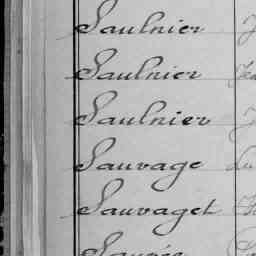 Saulnier
Saulnier
Saulnier
Sauvage
Sauvaget